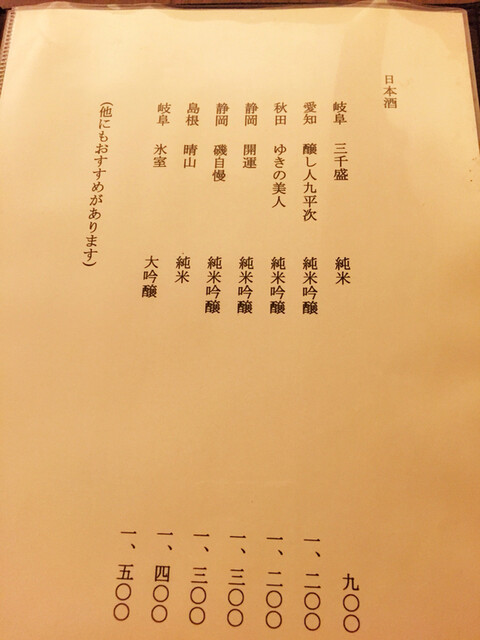 日本酒
岐阜 三千盛 純米 九〇〇
愛知 醸し人九平次 純米吟醸 一、二〇〇
秋田 ゆきの美人 純米吟醸 一、二〇〇
静岡 開運 純米吟醸 一、三〇〇
静岡 磯自慢 純米吟醸 一、三〇〇
島根 晴山 純米 一、四〇〇
岐阜 氷室 大吟醸 一、五〇〇
(他にもおすすめがあります)